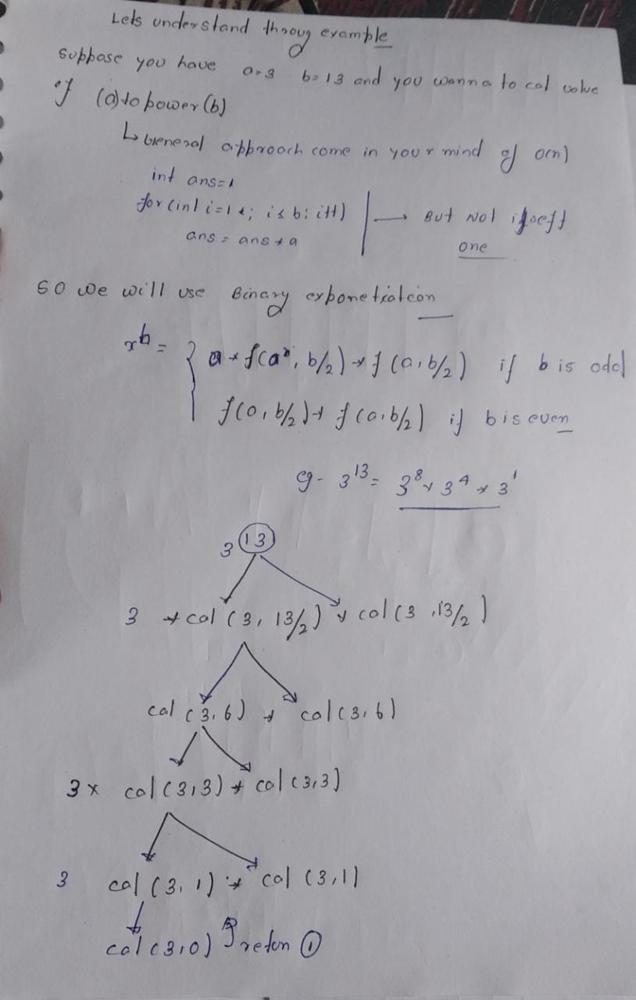 Lets understand throug example
Suppose you have a=3 b=13 and you wanna to cal value
of (a) to power (b)
↳ General approach come in your mind of o(n)
int ans=1
for (int i=1; i≤b; i++)
ans = ans * a
→ But not
one
So we will use Binary exponetiation
= { a * f(a, b/2) * f(a, b/2) if b is odd
f(a, b/2) * f(a, b/2) if b is even
eg- 3^13 = 3^8 * 3^4 * 3^1
3^13
3 * cal (3, 13/2) * cal (3, 13/2)
cal (3, 6) * cal (3, 6)
3 × cal (3, 3) * cal (3, 3)
3 cal (3, 1) * cal (3, 1)
cal (3, 0) } retun 1